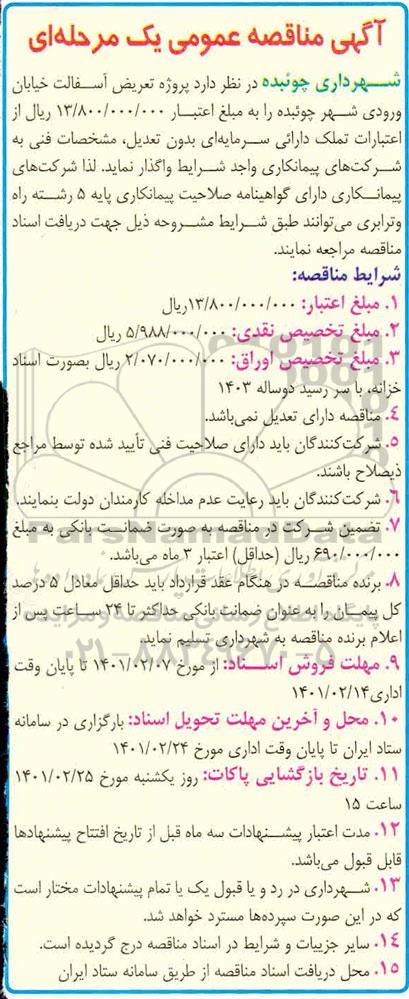 آگهی مناقصه عمومی یک مرحله‌ای
شـــهرداری چوئبده در نظر دارد پروژه تعریض آسـفالت خیابان
ورودی شــهر چوئبده را به مبلغ اعتبــار ۱۳/۸۰۰/۰۰۰/۰۰۰ ریال از
اعتبارات تملک دارائی ســرمایه‌ای بدون تعدیل، مشخصات فنی به
شــرکت‌های پیمانکاری واجد شــرایط واگذار نماید. لذا شرکت‌های
پیمانــکاری دارای گواهینامه صلاحیت پیمانکاری پایه ۵ رشــته راه
وترابری می‌توانند طبق شــرایط مشــروحه ذیل جهت دریافت اسناد
مناقصه مراجعه نمایند.
شرایط مناقصه:
۱. مبلغ اعتبار: ۱۳/۸۰۰/۰۰۰/۰۰۰ریال
۲. مبلغ تخصیص نقدی: ۵/۹۸۸/۰۰۰/۰۰۰ ریال
۳. مبلغ تخصیص اوراق: ۲/۰۷۰/۰۰۰/۰۰۰ ریال بصورت اسناد
خزانه، با سر رسید دوساله ۱۴۰۳
۴. مناقصه دارای تعدیل نمی‌باشد.
۵. شرکت‌کنندگان باید دارای صلاحیت فنی تأیید شده توسط مراجع
ذیصلاح باشند.
۶. شرکت‌کنندگان باید رعایت عدم مداخله کارمندان دولت بنمایند.
۷. تضمین شــرکت در مناقصه به صورت ضمانــت بانکی به مبلغ
۶۹۰/۰۰۰/۰۰۰ ریال (حداقل) اعتبار ۳ ماه می‌باشد.
۸. برنده مناقصــه در هنگام عقد قرارداد باید حداقل معادل ۵ درصد
کل پیمــان را به عنوان ضمانت بانکی حداکثر تا ۲۴ ســاعت پس از
اعلام برنده مناقصه به شهرداری تسلیم نماید.
۹. مهلت فروش اســـناد: از مورخ ۱۴۰۱/۰۲/۰۷ تا پایان وقت
اداری۱۴۰۱/۰۲/۱۴
۱۰. محل و آخرین مهلت تحویل اسناد: بارگزاری در سامانه
ستاد ایران تا پایان وقت اداری مورخ ۱۴۰۱/۰۲/۲۴
۱۱. تاریخ بازگشایی پاکات: روز یکشنبه مورخ ۱۴۰۱/۰۲/۲۵
ساعت ۱۵
۱۲. مدت اعتبار پیشــنهادات سه ماه قبل از تاریخ افتتاح پیشنهادها
قابل قبول می‌باشد.
۱۳. شــهرداری در رد و یا قبول یک یا تمام پیشنهادات مختار است
که در این صورت سپرده‌ها مسترد خواهد شد.
۱۴. سایر جزییات و شرایط در اسناد مناقصه درج گردیده است.
۱۵. محل دریافت اسناد مناقصه از طریق سامانه ستاد ایران
ParsNamadData
۰۲۱-۸۸۳۴۹۶۷۰-۵